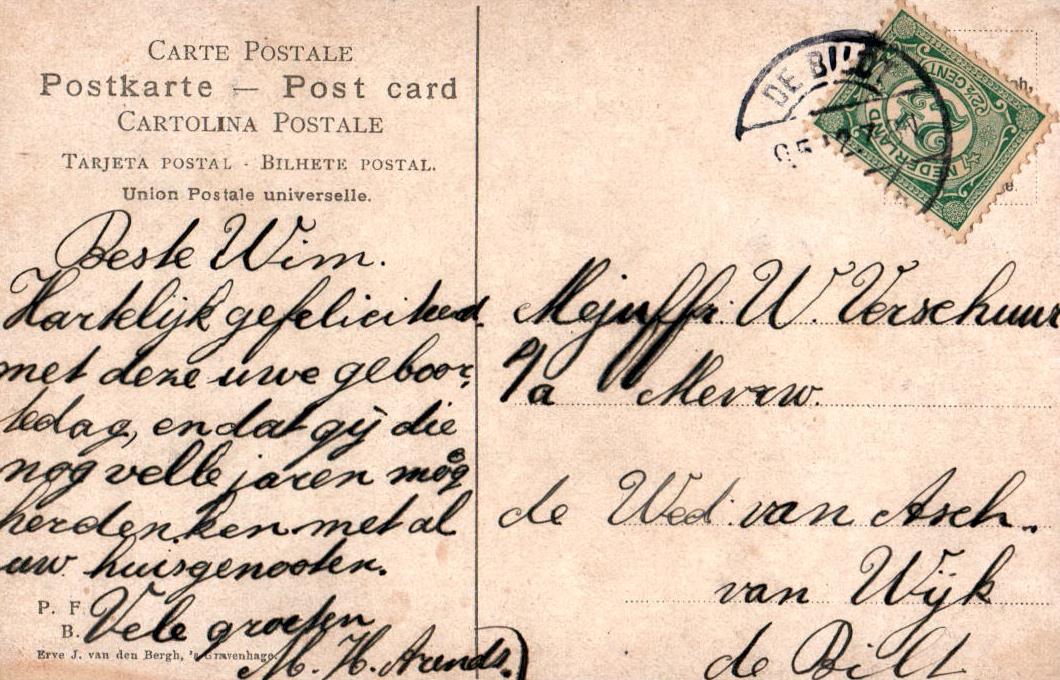 CARTE POSTALE
Postkarte — Post card
CARTOLINA POSTALE
TARJETA POSTAL · BILHETE POSTAL.
Union Postale universelle.
Beste Wim.
Hartelijk gefeliciteerd
met deze uwe geboor,
tedag, en dat gij die
nog velle jaren mög
herdenken met al
uw huisgenooten.
P. F.
B. Vele groeten
M. H. Arends.
Erve J. van den Bergh, 's Gravenhage.
DE BILDT
NEDERLAND
2½ CENT
Mejuffr. W. Verschuur
p/a Mevrw.
de Wed van Asch.
van Wijk
de Bilt